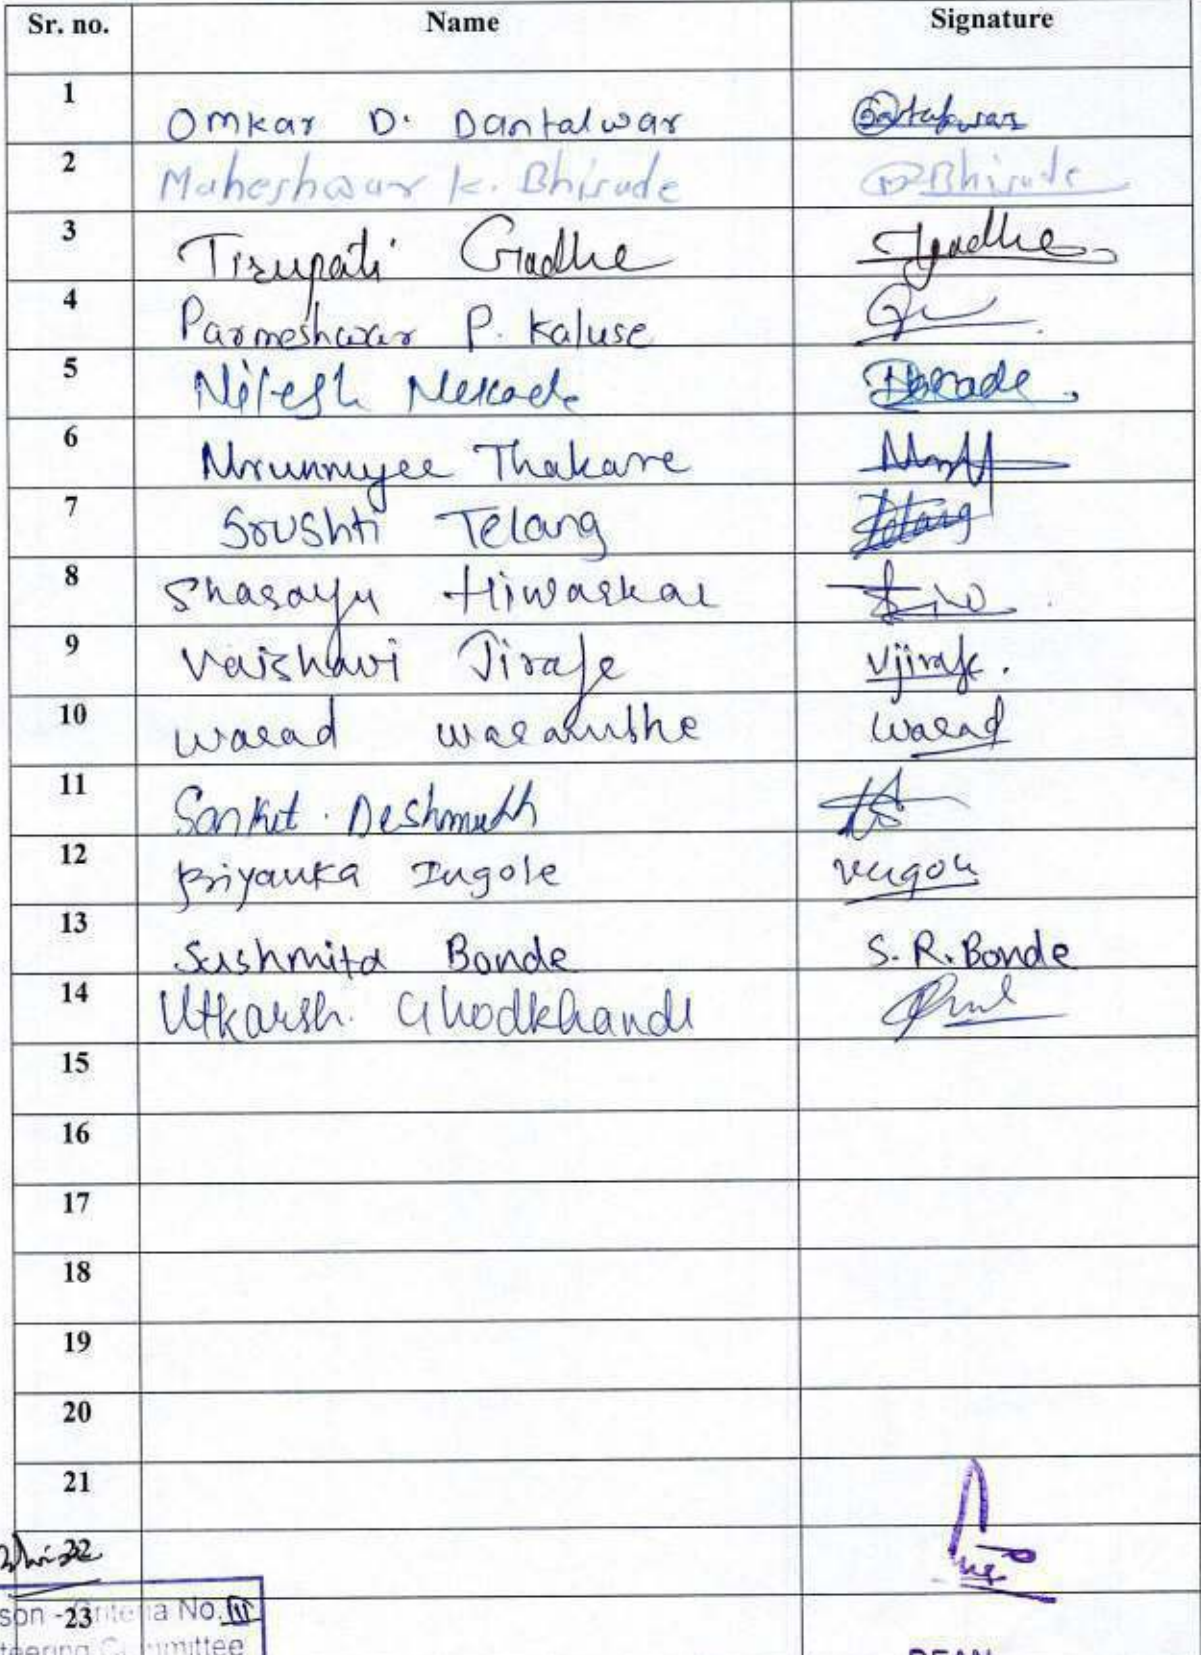 Sr. no. Name Signature
1 Omkar D. Dantalwar
2 Maheshwar k. Bhisade Bhisade
3 Tirupati Gadhe Tgadhe
4 Parmeshwar P. Kaluse
5 Nitesh Nerkade
6 Mrunmyee Thakare
7 Srushti Telang Telang
8 Sharayu Hiwarkar
9 Vaishavi Jirafe Vjirafe.
10 warad waranushe warad
11 Sanket. Deshmukh
12 Priyanka Ingole
13 Sushmita Bonde S. R. Bonde
14 Utkarsh. Ghodkhande
15
16
17
18
19
20
21
22
23
son - Criteria No. III
teering Committee
DEAN